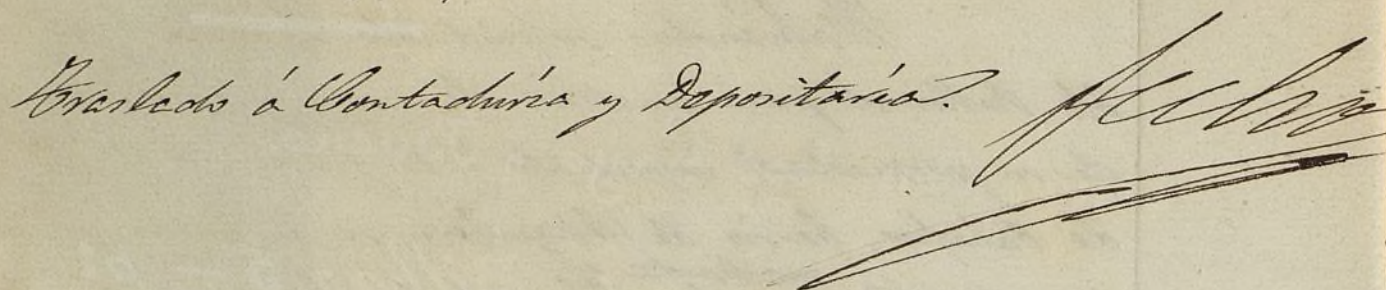 Traslado á Contaduría y Depositaría.